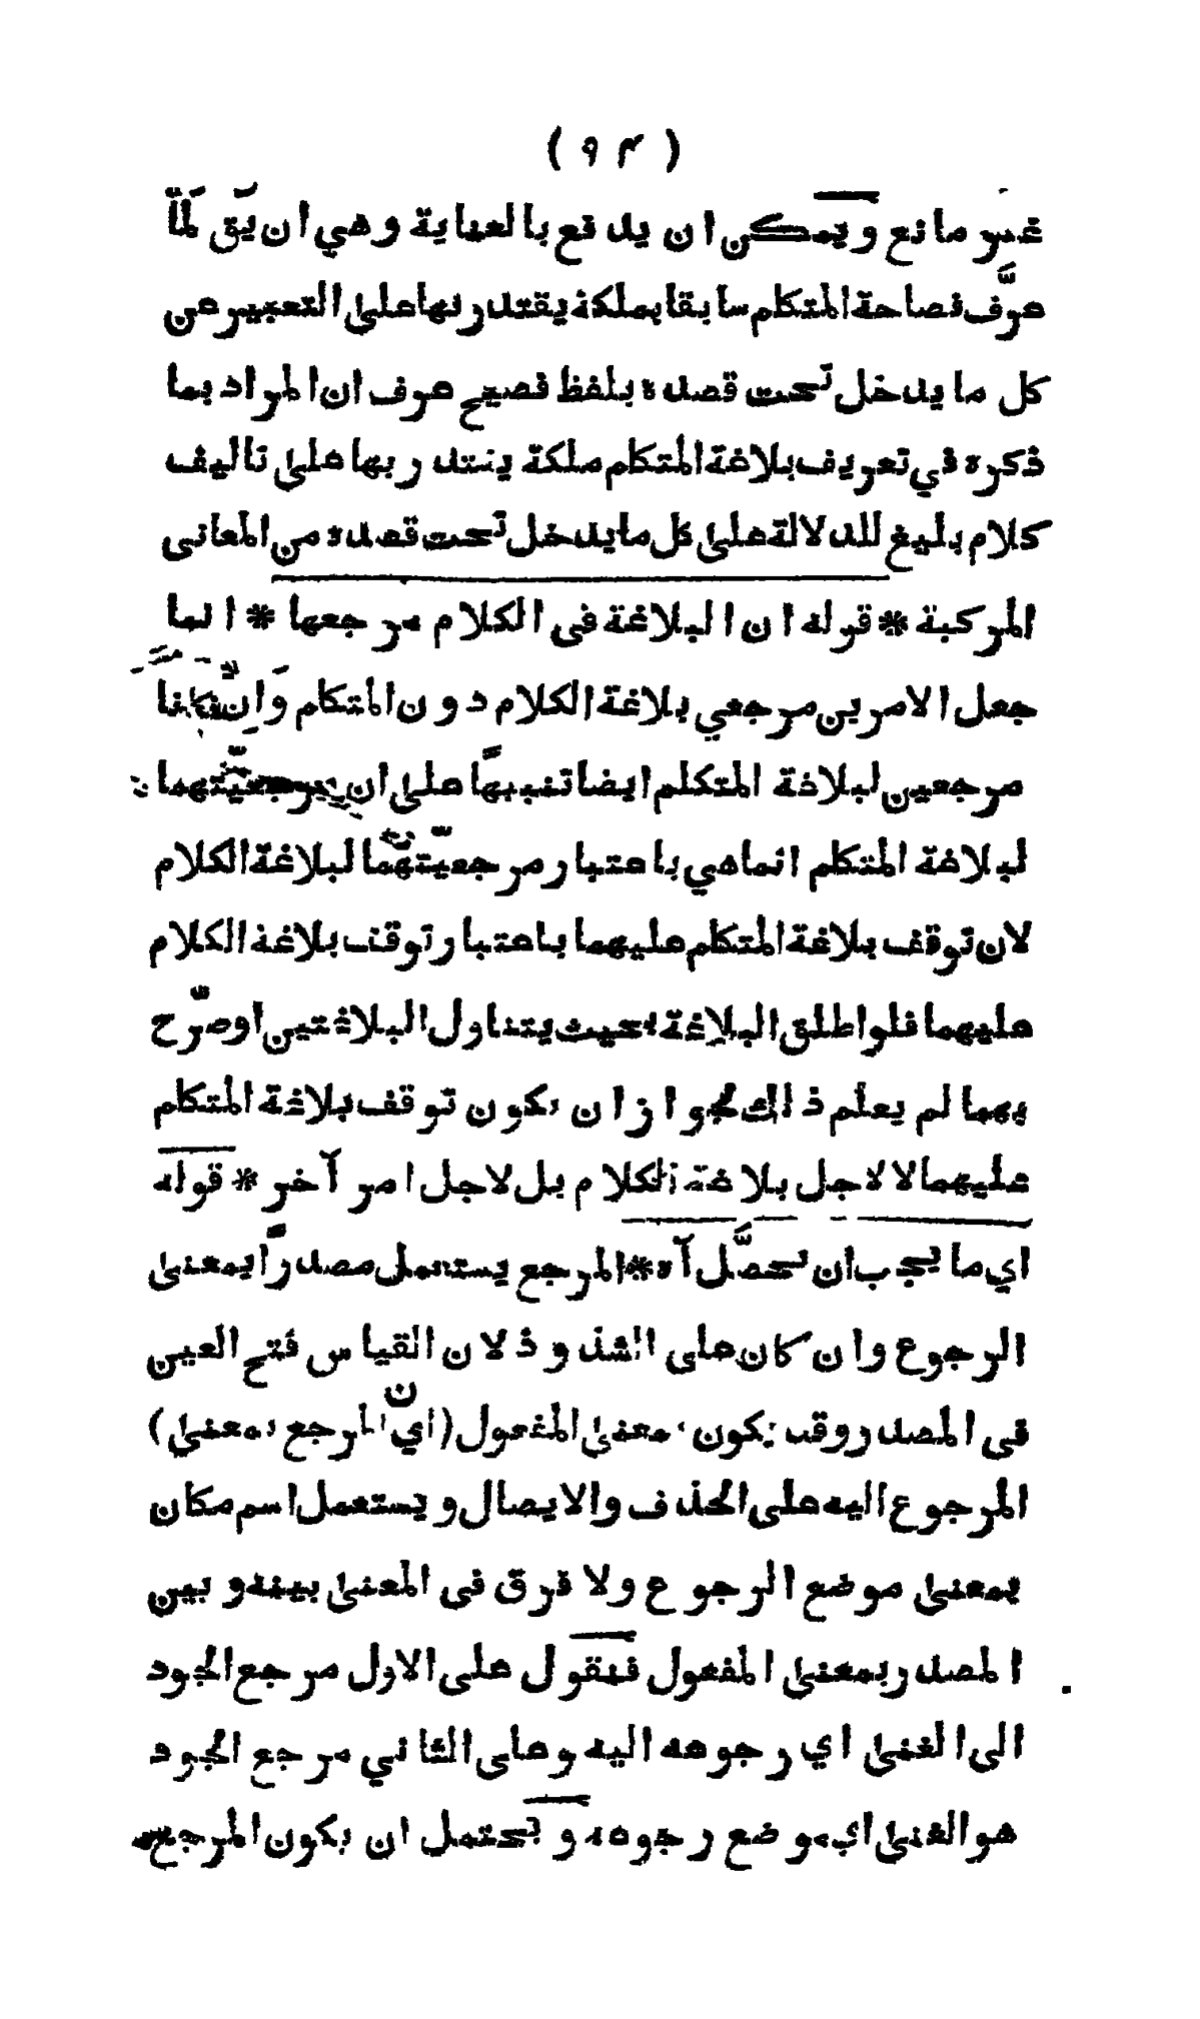 ( ٩٣ )
غير مانع ويمكن ان يدفع بالعناية وهي ان يق لمّا
عرّف فصاحة المتكلم سابقا بملكة يقتدر بها على التعبير عن
كل ما يدخل تحت قصده بلفظ فصيح عرف ان المراد بما
ذكره في تعريف بلاغة المتكلم ملكة يقتدر بها على تاليف
كلام بليغ للدلالة على كل ما يدخل تحت قصده من المعانى
المركبة * قوله ان البلاغة فى الكلام مرجعها * انما
جعل الامرين مرجعي بلاغة الكلام دون المتكلم وان كانا
مرجعين لبلاغة المتكلم ايضا تنبيهًا على ان مرجعيّتهما
لبلاغة المتكلم انماهي باعتبار مرجعيّتهما لبلاغة الكلام
لان توقف بلاغة المتكلم عليهما باعتبار توقف بلاغة الكلام
عليهما فلو اطلق البلاغة بحيث يتناول البلاغتين او صرّح
بهما لم يعلم ذلك لجواز ان يكون توقف بلاغة المتكلم
عليهما لا لاجل بلاغة الكلام بل لاجل امر آخر * قوله
اي ما يجب ان تحصّل آه * المرجع يستعمل مصدرًا بمعنى
الرجوع وان كان على الشذوذ لان القياس فتح العين
فى المصدر وقد يكون بمعنى المفعول (اي المرجع بمعنى)
المرجوع اليه على الحذف والايصال ويستعمل اسم مكان
بمعنى موضع الرجوع ولا فرق فى المعنى بينه وبين
المصدر بمعنى المفعول فنقول على الاول مرجع الجود
الى الغنى اي رجوعه اليه وعلى الثاني مرجع الجود
هو الغنى اي موضع رجوعه ويحتمل ان يكون المرجع